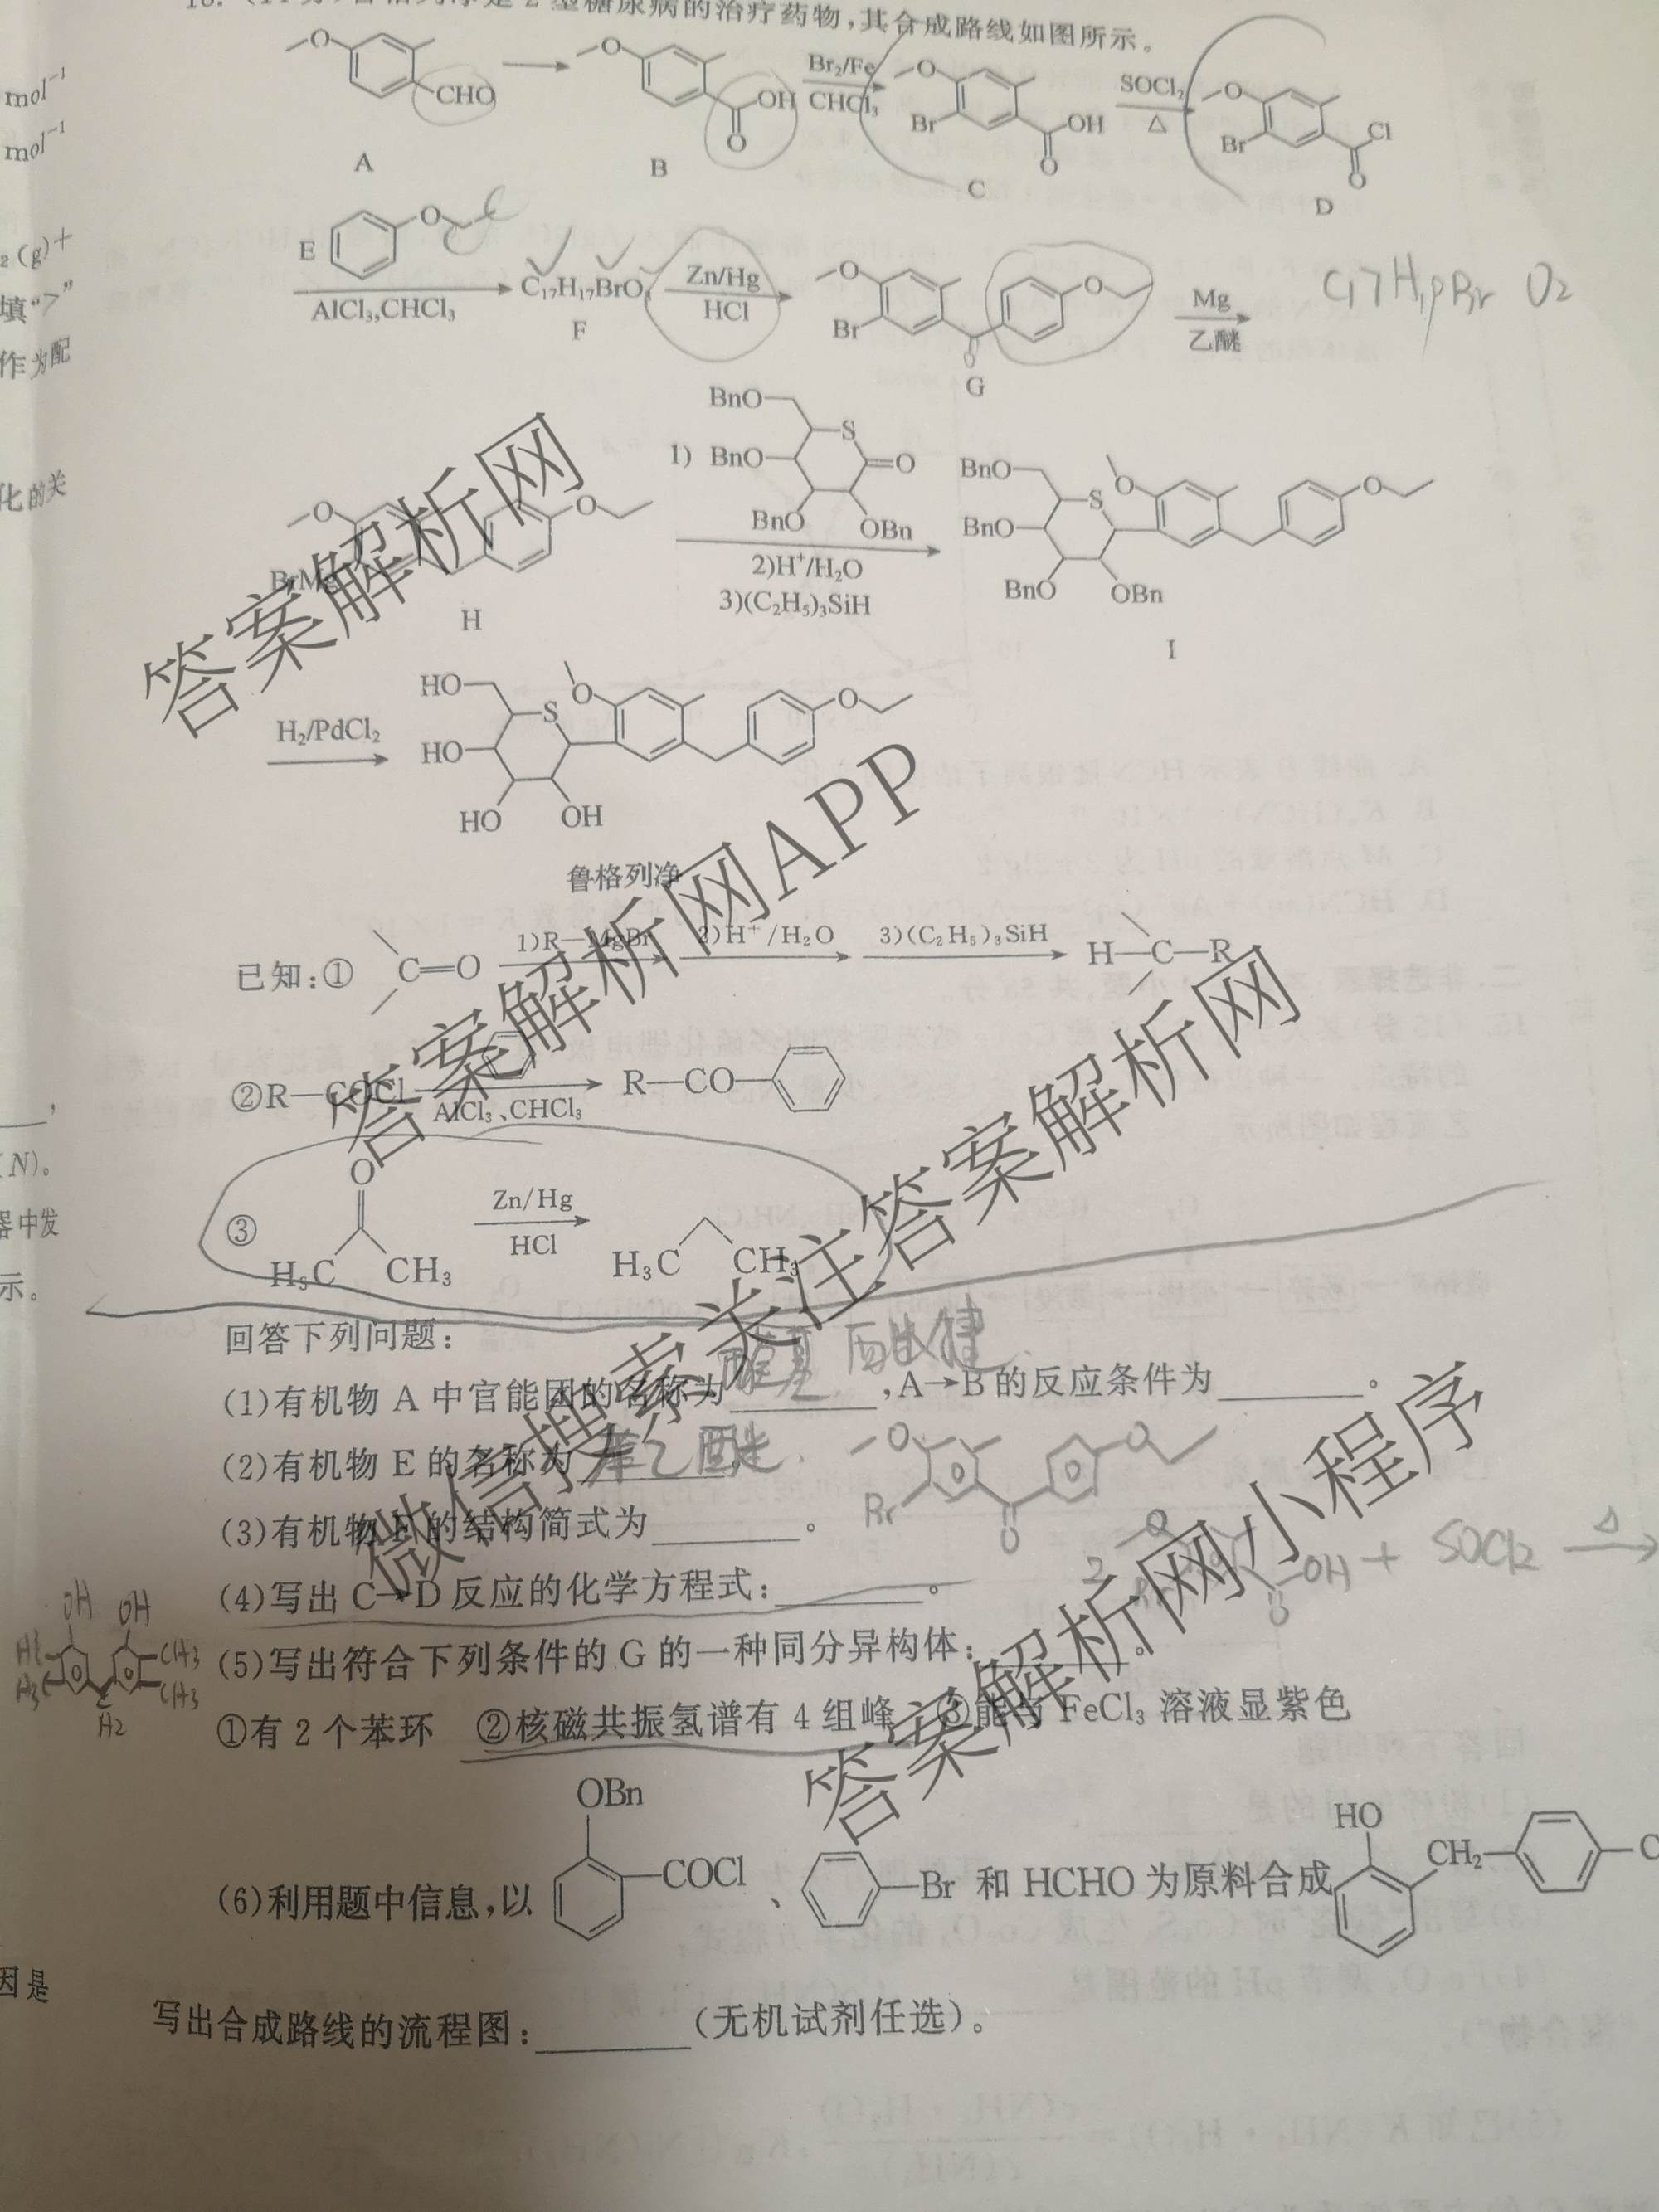 型糖尿病的治疗药物,其合成路线如图所示。
mol⁻¹
mol⁻¹
CHO
A
OH
O
B
Br₂/Fe
CHCl₃
Br
OH
O
C
SOCl₂
△
Br
Cl
O
D
₂(g)+
填“>”
作为配
E
O
AlCl₃,CHCl₃
C₁₇H₁₇BrO₃
F
Zn/Hg
HCl
O
Br
O
G
Mg
乙醚
O₂
化的关
O
H
1)
BnO
BnO
BnO
OBn
S
O
2)H⁺/H₂O
3)(C₂H₅)₃SiH
BnO
BnO
BnO
OBn
S
O
O
I
H₂/PdCl₂
HO
HO
HO
OH
S
O
O
鲁格列净
已知:①
C=O
1)R—MgBr
2)H⁺/H₂O
3)(C₂H₅)₃SiH
H—C—R
②R—COCl
AlCl₃、CHCl₃
R—CO
③
O
H₃C CH₃
Zn/Hg
HCl
H₃C CH₃
(N)。
器中发
示。
回答下列问题:
(1)有机物 A 中官能团的名称为 醛基 醚键 ,A→B 的反应条件为________。
(2)有机物 E 的名称为 苯乙醚.
(3)有机物 F 的结构简式为________。
Br
O
(4)写出 C→D 反应的化学方程式:________。
2
OH + SOCl₂ △
(5)写出符合下列条件的 G 的一种同分异构体:________。
①有 2 个苯环 ②核磁共振氢谱有 4 组峰 ③能与 FeCl₃ 溶液显紫色
OH OH
CH₃
CH₃
H₂
(6)利用题中信息,以
OBn
COCl
、
Br 和 HCHO 为原料合成
HO
CH₂
因是
写出合成路线的流程图:________(无机试剂任选)。
答案解析网
答案解析网APP
微信搜索关注答案解析网
答案解析网小程序